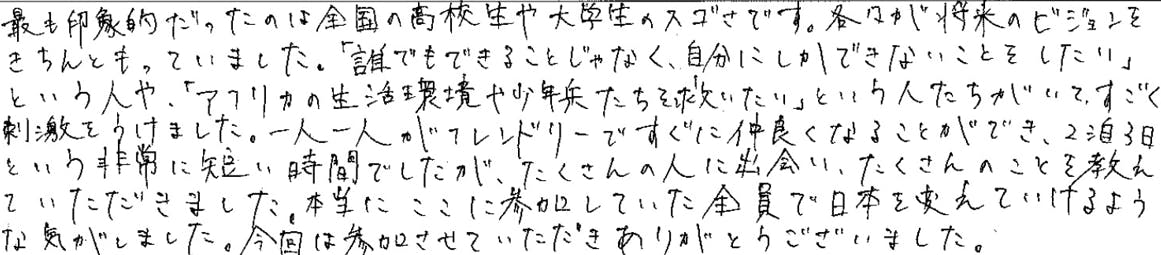 最も印象的だったのは全国の高校生や大学生のスゴさです。各々が将来のビジョンを
きちんともっていました。「誰でもできることじゃなく、自分にしかできないことをしたい」
という人や、「アフリカの生活環境や少年兵たちを救いたい」という人たちがいて、すごく
刺激をうけました。一人一人がフレンドリーですぐに仲良くなることができ、2泊3日
という非常に短い時間でしたが、たくさんの人に出会い、たくさんのことを教え
ていただきました。本当にここに参加していた全員で日本を変えていけるよう
な気がしました。今回は参加させていただきありがとうございました。